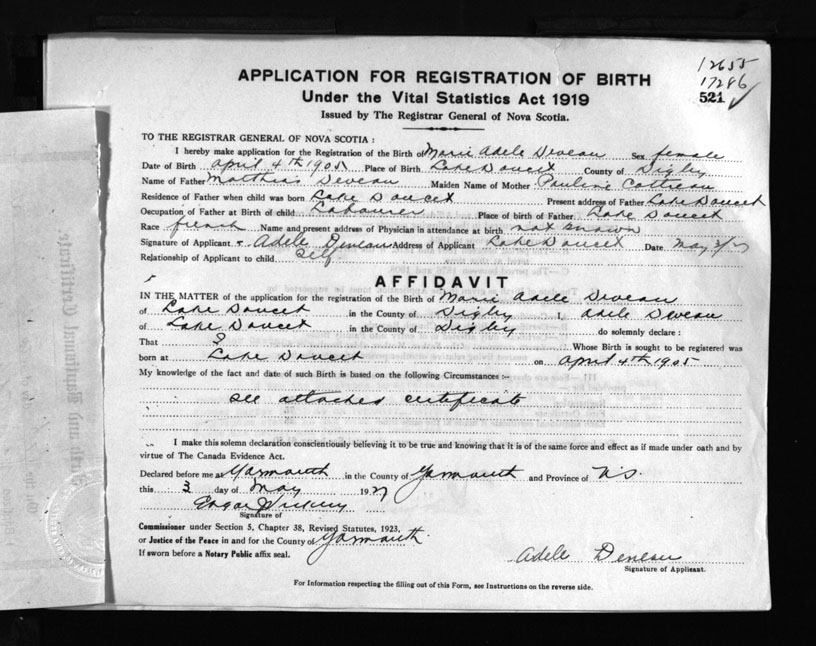 12655
17286
521
APPLICATION FOR REGISTRATION OF BIRTH
Under the Vital Statistics Act 1919
Issued by The Registrar General of Nova Scotia.
TO THE REGISTRAR GENERAL OF NOVA SCOTIA :
I hereby make application for the Registration of the Birth of Marie Adele Deveau Sex female
Date of Birth April 4th 1905 Place of Birth Lake Doucet County of Digby
Name of Father Matthias Deveau Maiden Name of Mother Pauline
Residence of Father when child was born Lake Doucet Present address of Father Lake Doucet
Occupation of Father at Birth of child Labourer Place of birth of Father Lake Doucet
Race french Name and present address of Physician in attendance at birth not known
Signature of Applicant Adele Deveau Address of Applicant Lake Doucet Date May 3/27
Relationship of Applicant to child Self
AFFIDAVIT
IN THE MATTER of the application for the registration of the Birth of Marie Adele Deveau
of Lake Doucet in the County of Digby I, Adele Deveau
of Lake Doucet in the County of Digby do solemnly declare :
That I Whose Birth is sought to be registered was
born at Lake Doucet on April 4th 1905
My knowledge of the fact and date of such Birth is based on the following Circumstances :-
see attached certificate
I make this solemn declaration conscientiously believing it to be true and knowing that it is of the same force and effect as if made under oath and by
virtue of The Canada Evidence Act.
Declared before me at Yarmouth in the County of Yarmouth and Province of N.S.
this 3 day of May 1927
Signature of
Commissioner under Section 5, Chapter 38, Revised Statutes, 1923,
or Justice of the Peace in and for the County of Yarmouth
If sworn before a Notary Public affix seal.
Adele Deveau
Signature of Applicant.
For Information respecting the filling out of this Form, see Instructions on the reverse side.